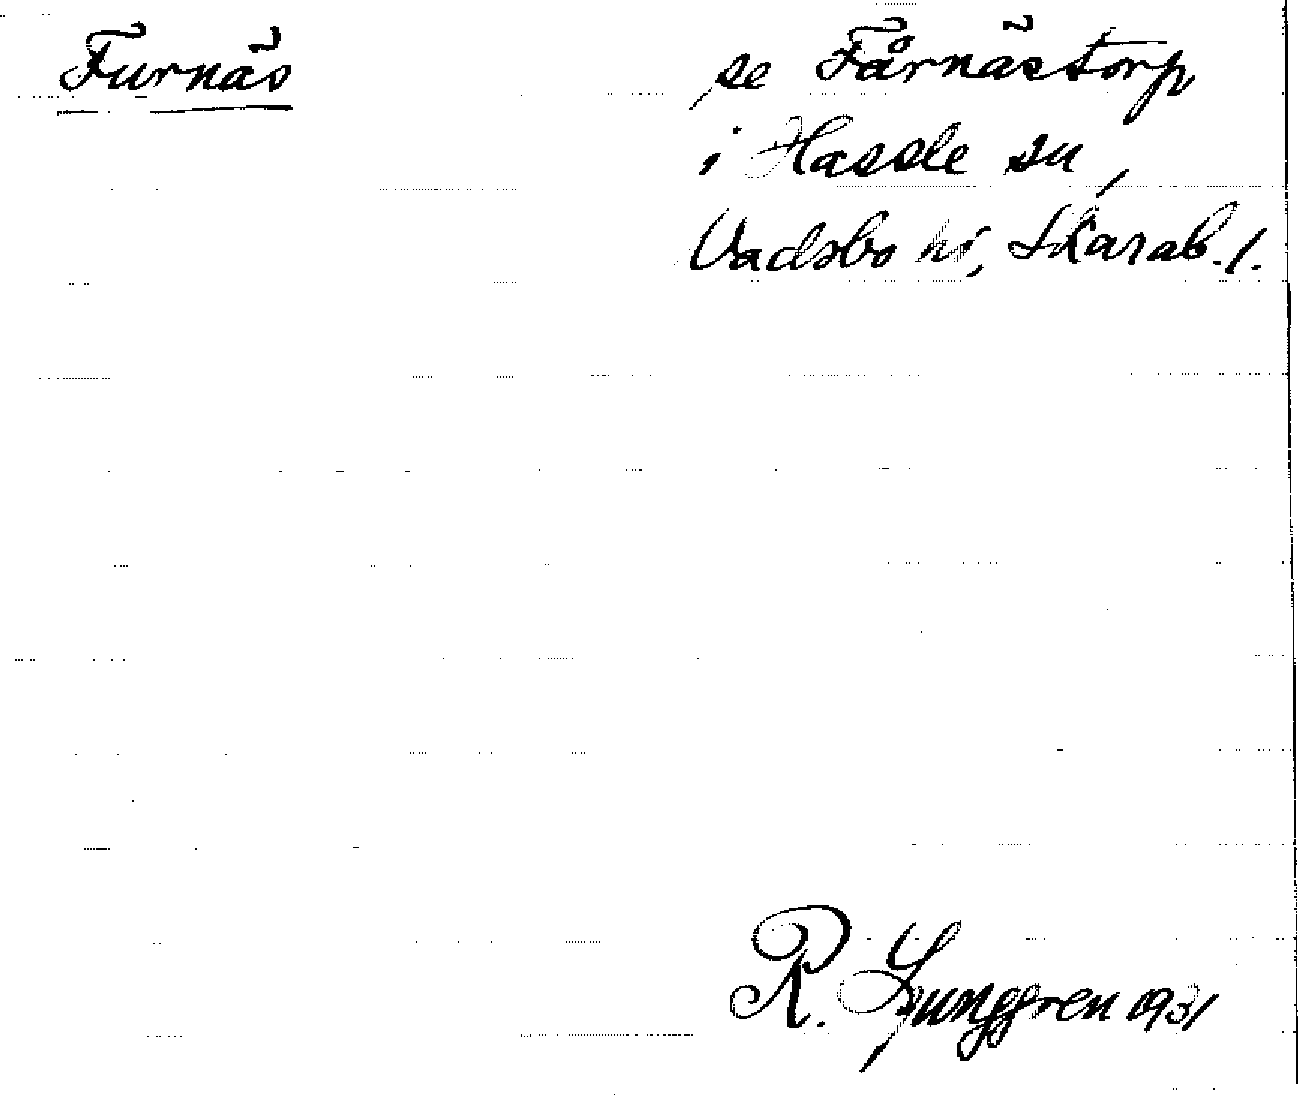 Furnäs
se Fårnästorp
i Hassle sn,
Vadsbo hd, Skarab.l.
R. Ljunggren 1931